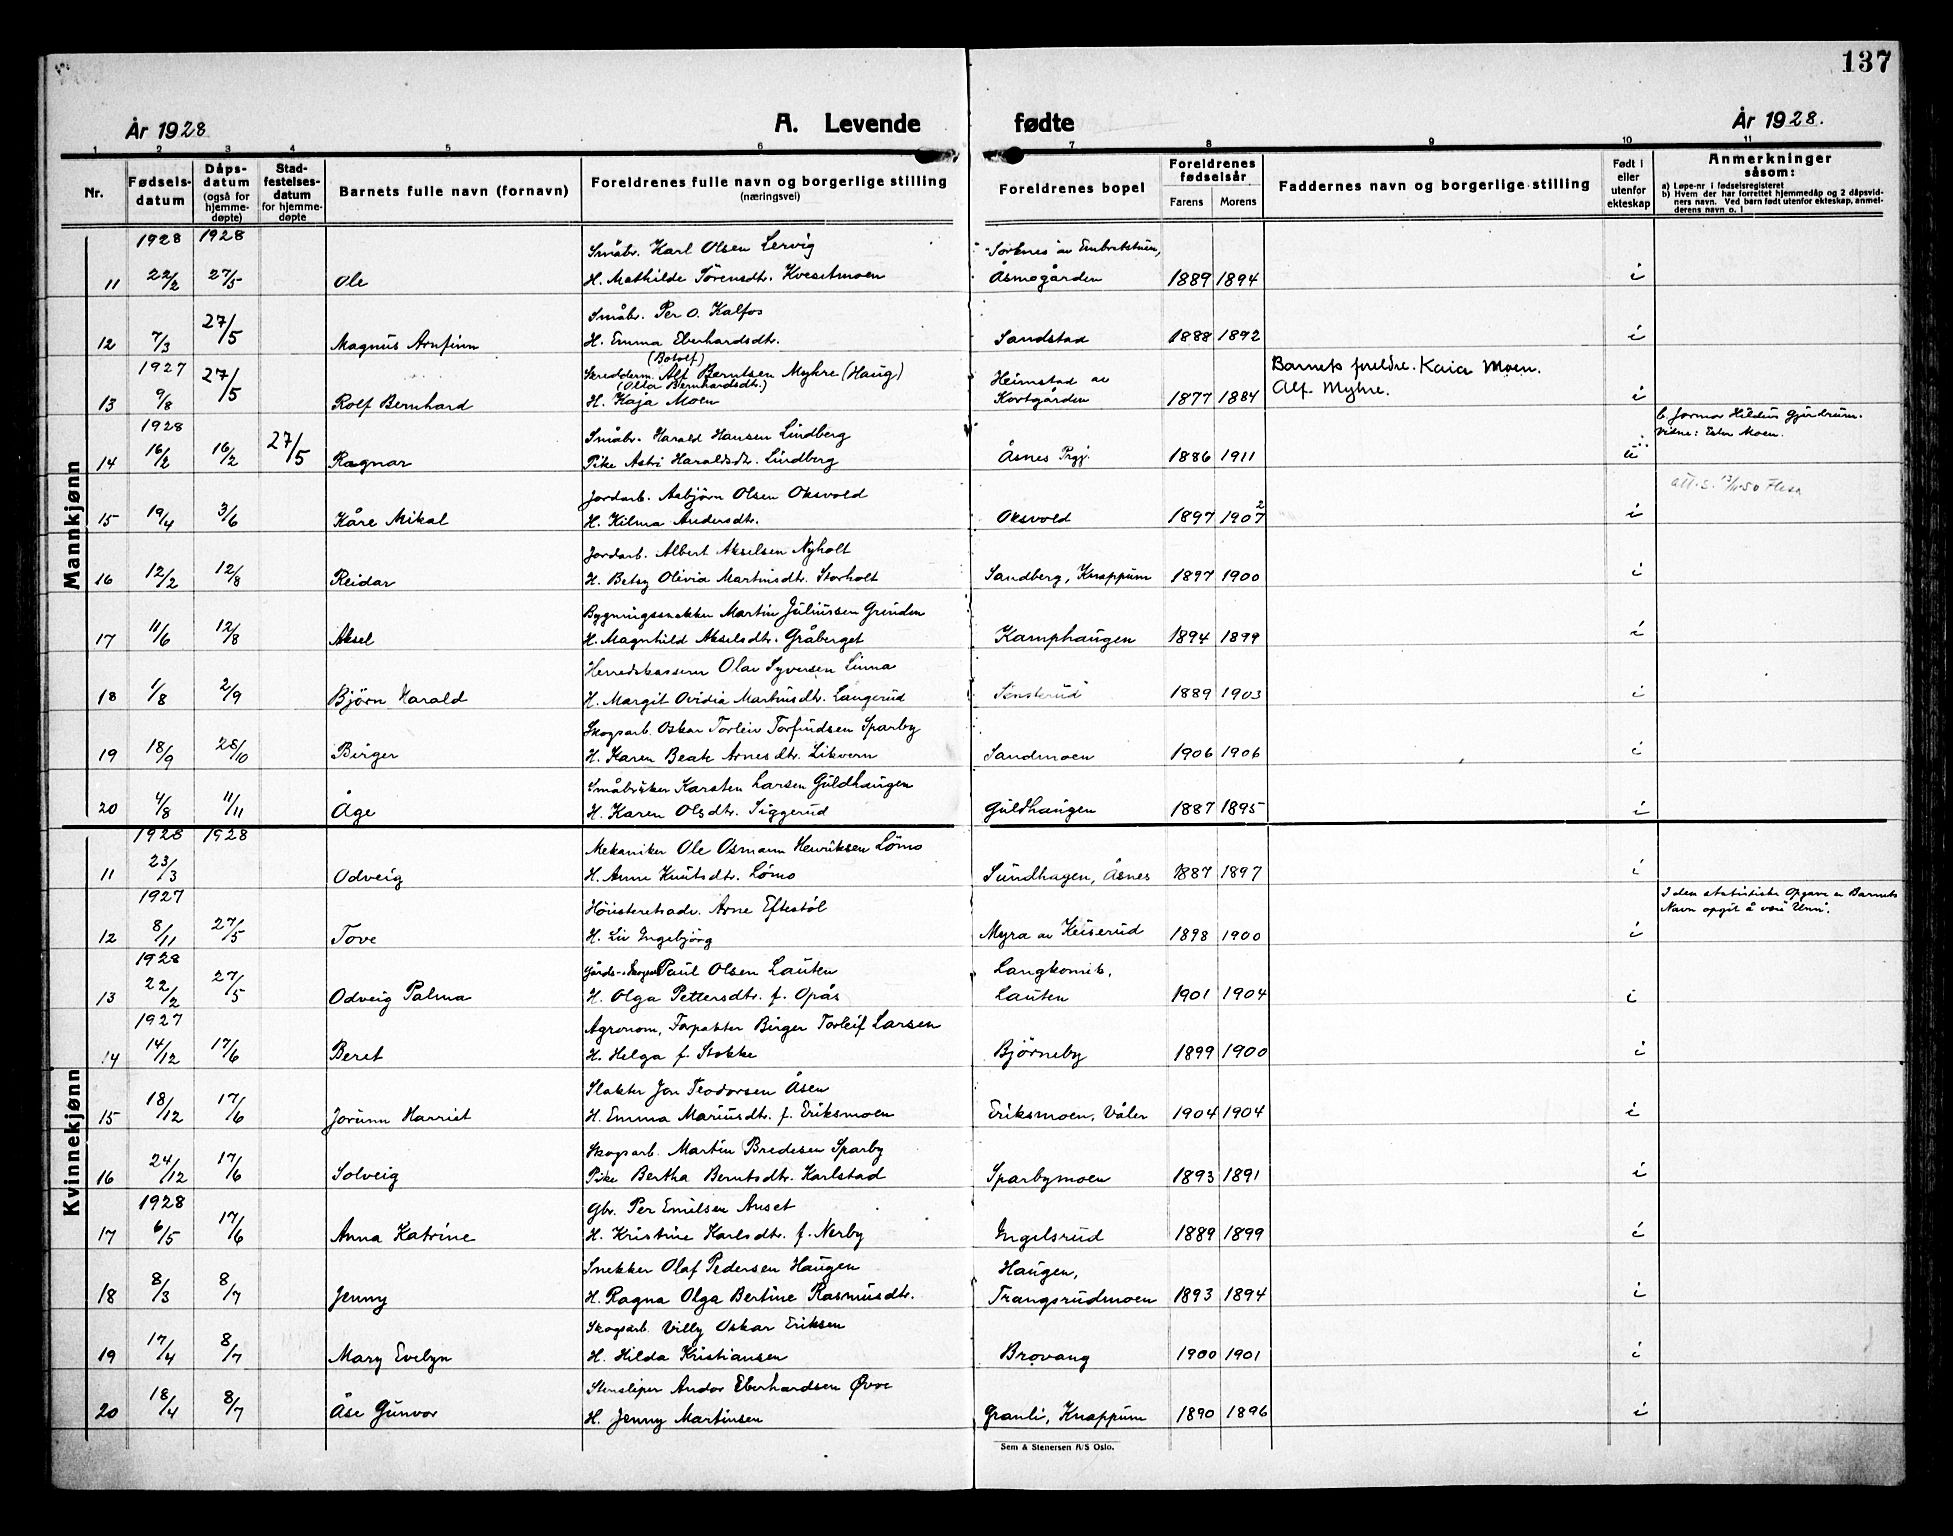 137
År 1928
A. Levende fødte
År 1928.
1 2 3 4 5 6 7 8 9 10 11
Nr.
Fødsels-datum
Dåps-datum (også for hjemme-døpte)
Stad-festelses-datum for hjemme-døpte
Barnets fulle navn (fornavn)
Foreldrenes fulle navn og borgerlige stilling (næringsvei)
Foreldrenes bopel
Foreldrenes fødselsår
Farens Morens
Faddernes navn og borgerlige stilling
Født i eller utenfor ekteskap
Anmerkninger såsom:
a) Løpe-nr i fødselsregisteret
b) Hvem der har forrettet hjemmedåp og 2 dåpsvidners navn. Ved barn født utenfor ekteskap, anmelderens navn o. l
Mannkjønn
1928 1928 Småbr. Karl Olsen Lervig "Sorknes" av Embretstun,
11 22/2 27/5 Ole H. Mathilde Tørensdtr. Kvesetmoen Åsmogården 1889 1894 i
Småbr. Per O. Kalfos
12 7/3 27/5 Magnus Arnfinn H. Emma Eberhardsdtr. Sandstad 1888 1892 i
(Botolf)
1927 Skredderm. Alf Berntsen Myhre (Haug) Heimstad av Barnets foreldre. Kaia Moen.
(Olta Bernhardsdtr.)
13 9/8 27/5 Rolf Bernhard H. Kaja Moen Kortgården 1877 1884 Alf Myhre. i
1928 Småbr. Harald Hansen Lindberg b. Jormor Hildur Gjerdrum.
Vidne: Ester Moen.
14 16/2 16/2 27/5 Ragnar Pike Astri Haraldsdtr. Lindberg Åsnes Prgj. 1886 1911 u
Jordarb. Asbjørn Olsen Oksvold
15 19/4 3/6 Kåre Mikal H. Hilma Andersdtr. Oksvold 1897 1907 2 i
Jordarb. Albert Akselsen Nyholt
16 12/2 12/8 Reidar H. Betsy Olivia Martinsdtr. Storholt Sandberg, Knappum 1897 1900 i
Bygningssnekker Martin Juliussen Grinden
17 11/6 12/8 Aksel H. Magnhild Akselsdtr. Gråberget Kamphaugen 1894 1899 i
Herredskasserer Olav Syversen Linna
18 1/8 2/9 Bjørn Harald H. Margit Ovidia Martinsdtr. Langerud Sønsterud 1889 1903 i
Skogsarb. Oskar Torleiv Torfindsen Sparby
19 18/9 28/10 Birger H. Karen Beate Arnesdtr. Likvern Sandmoen 1906 1906 i
Småbruker Karsten Larsen Guldhaugen
20 4/8 11/11 Åge H. Karen Olsdtr. Siggerud Guldhaugen 1887 1895 i
Kvinnekjønn
1928 1928 Mekaniker Ole Osmann Henriksen Lømo
11 23/3 Odveig H. Anne Knutsdtr. Lømo Sundhagen, Åsnes 1887 1897 i
1927 Høiesteretsadv. Arne Eftestøl I den statistiske Opgave er Barnets
Navn opgit å være "Unni".
12 8/11 27/5 Tove H. Liv Ingebjørg Myra av Keiserud 1898 1900 i
1928 Paul Olsen Lauten Langkomis.
13 22/2 27/5 Odveig Palma H. Olga Pettersdtr. f. Opås Lauten 1901 1904 i
1927 Agronom, Forpakter Birger Torleif Larsen
14 14/12 17/6 Beret H. Helga f. Stokke Bjørneby 1899 1900 i
Slakter Jon Teodorsen Åsen
15 18/12 17/6 Jorunn Harriet H. Emma Mariusdtr. f. Eriksmoen Eriksmoen, Våler 1904 1904 i
Skogsarb. Martin Bredesen Sparby
16 24/12 17/6 Solveig Pike Bertha Berntsdtr. Karlstad Sparbymoen 1893 1891 i
1928 Gbr. Per Emilsen Anset
17 6/5 17/6 Anna Katrine H. Kristine Karlsdtr. f. Nerby Ingelsrud 1889 1899 i
Snekker Olaf Pedersen Haugen Haugen,
18 8/3 8/7 Jenny H. Ragna Olga Bertine Rasmusdtr. Trangsrudmoen 1893 1894 i
Skogsarb. Villy Oskar Eriksen
19 17/4 8/7 Mary Evelyn H. Hilda Kristiansen Brovang 1900 1901 i
Stensliper Andor Eberhardsen Øvre
20 18/4 8/7 Åse Gunvor H. Jenny Martinsen Granli, Knappum 1890 1896 i
Sem & Stenersen A/S Oslo.